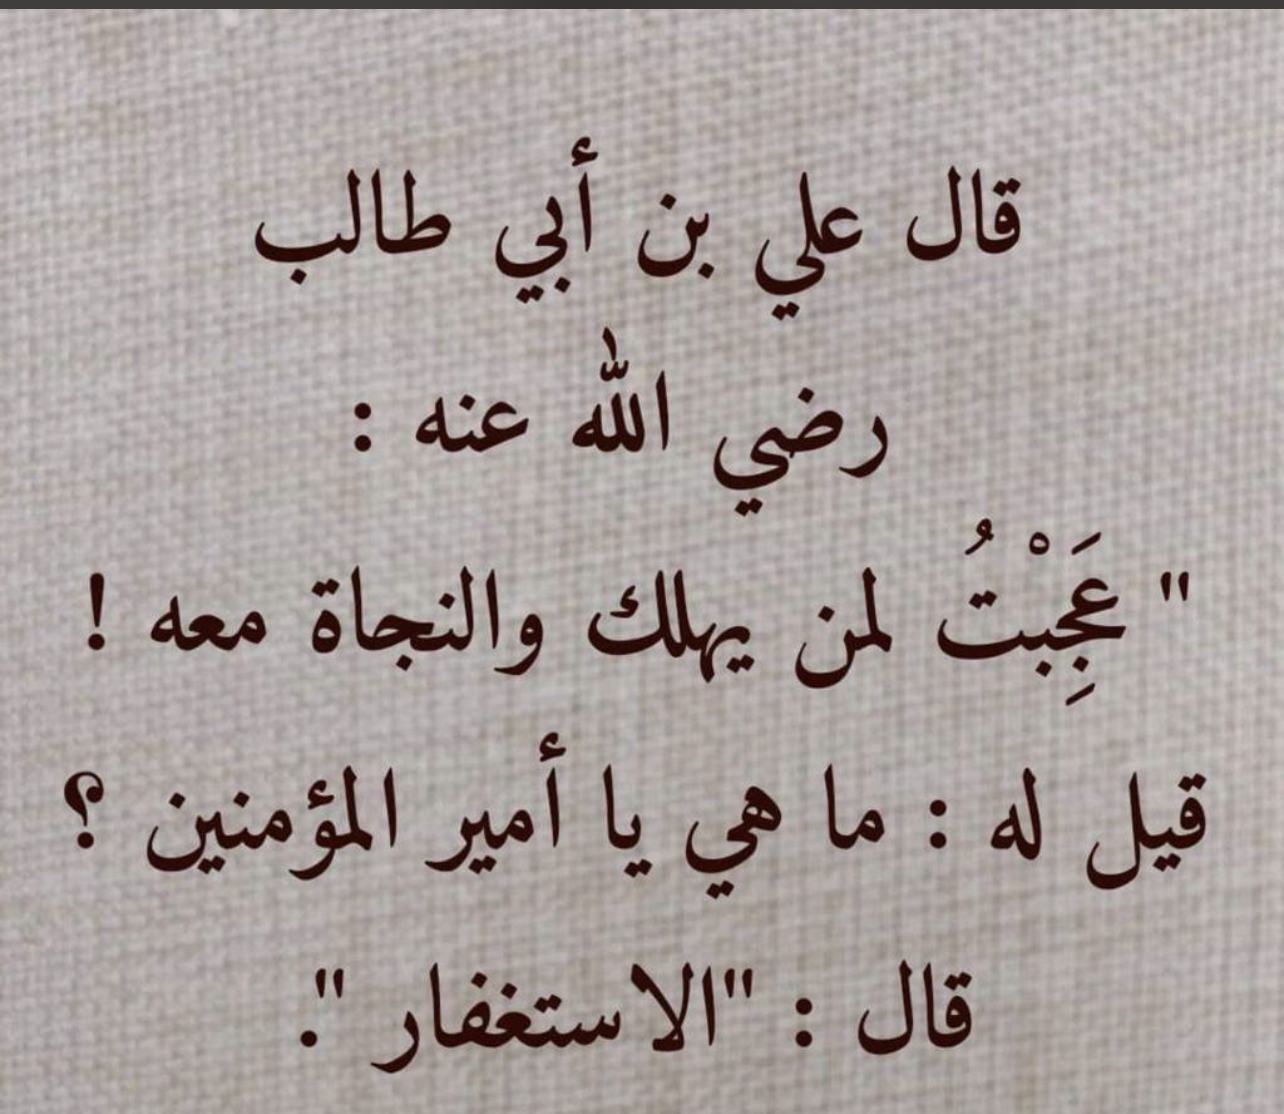 قال علي بن أبي طالب
رضي الله عنه :
" عَجِبْتُ لمن يهلك والنجاة معه !
قيل له : ما هي يا أمير المؤمنين ؟
قال : "الاستغفار ".